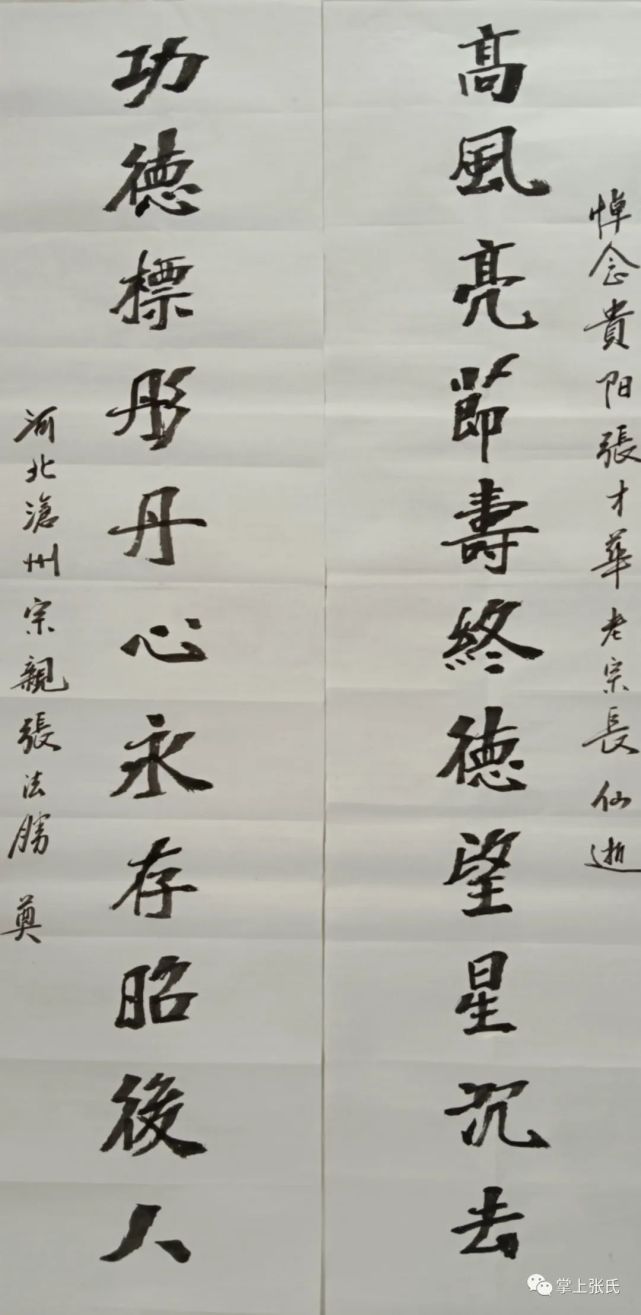 悼念貴阳張才華老宗長仙逝
高風亮節壽終德望星沉去
功德標彤丹心永存昭後人
河北滄州宗親張法勝 奠
掌上张氏